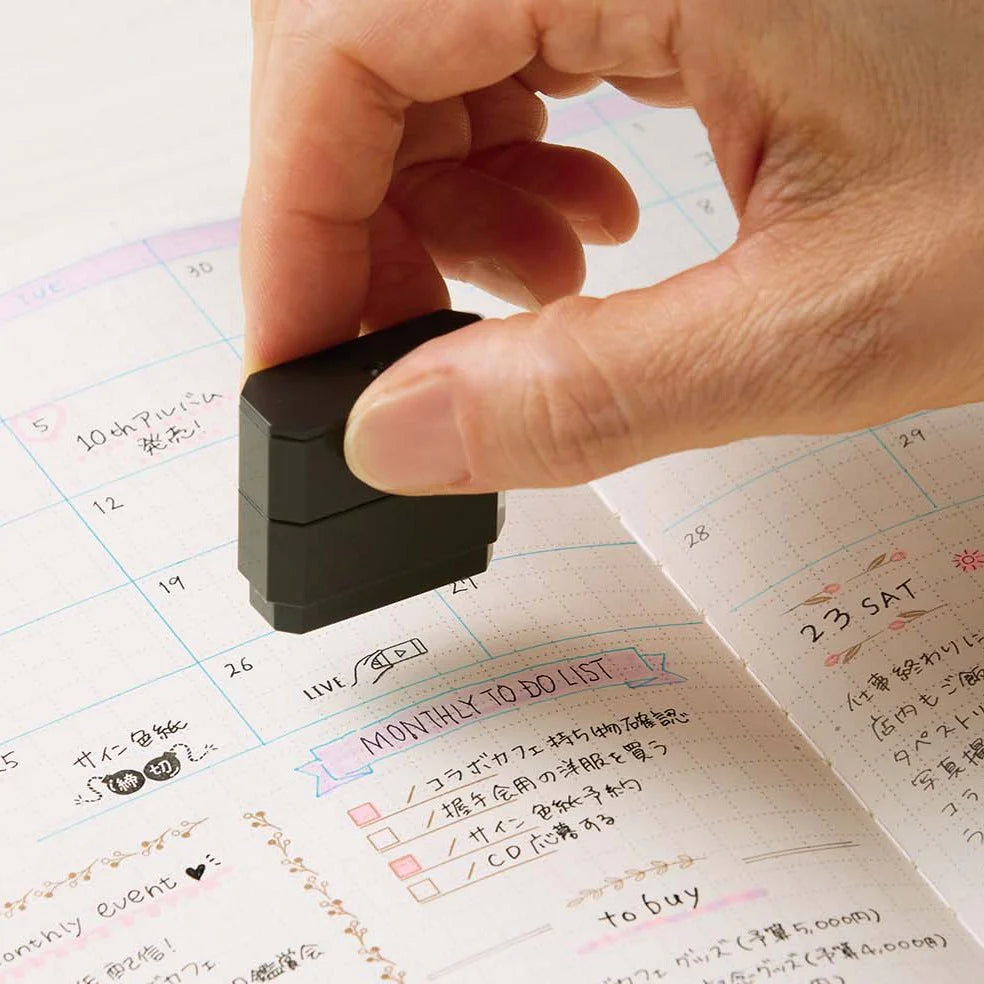 TUE
30
1
8
5
10thアルバム
発売!
12
19
26
27
LIVE
サイン色紙
締切
28
29
MONTHLY TO DO LIST
コラボカフェ持ち物確認
握手会用の洋服を買う
サイン色紙予約
CD応募する
monthly event
配信!
カフェ
鑑賞会
to buy
カフェグッズ(予算5,000円)
グッズ(予算4,000円)
23 SAT
仕事終わりに
店内もご飯
タペストリ
写真撮
コラ